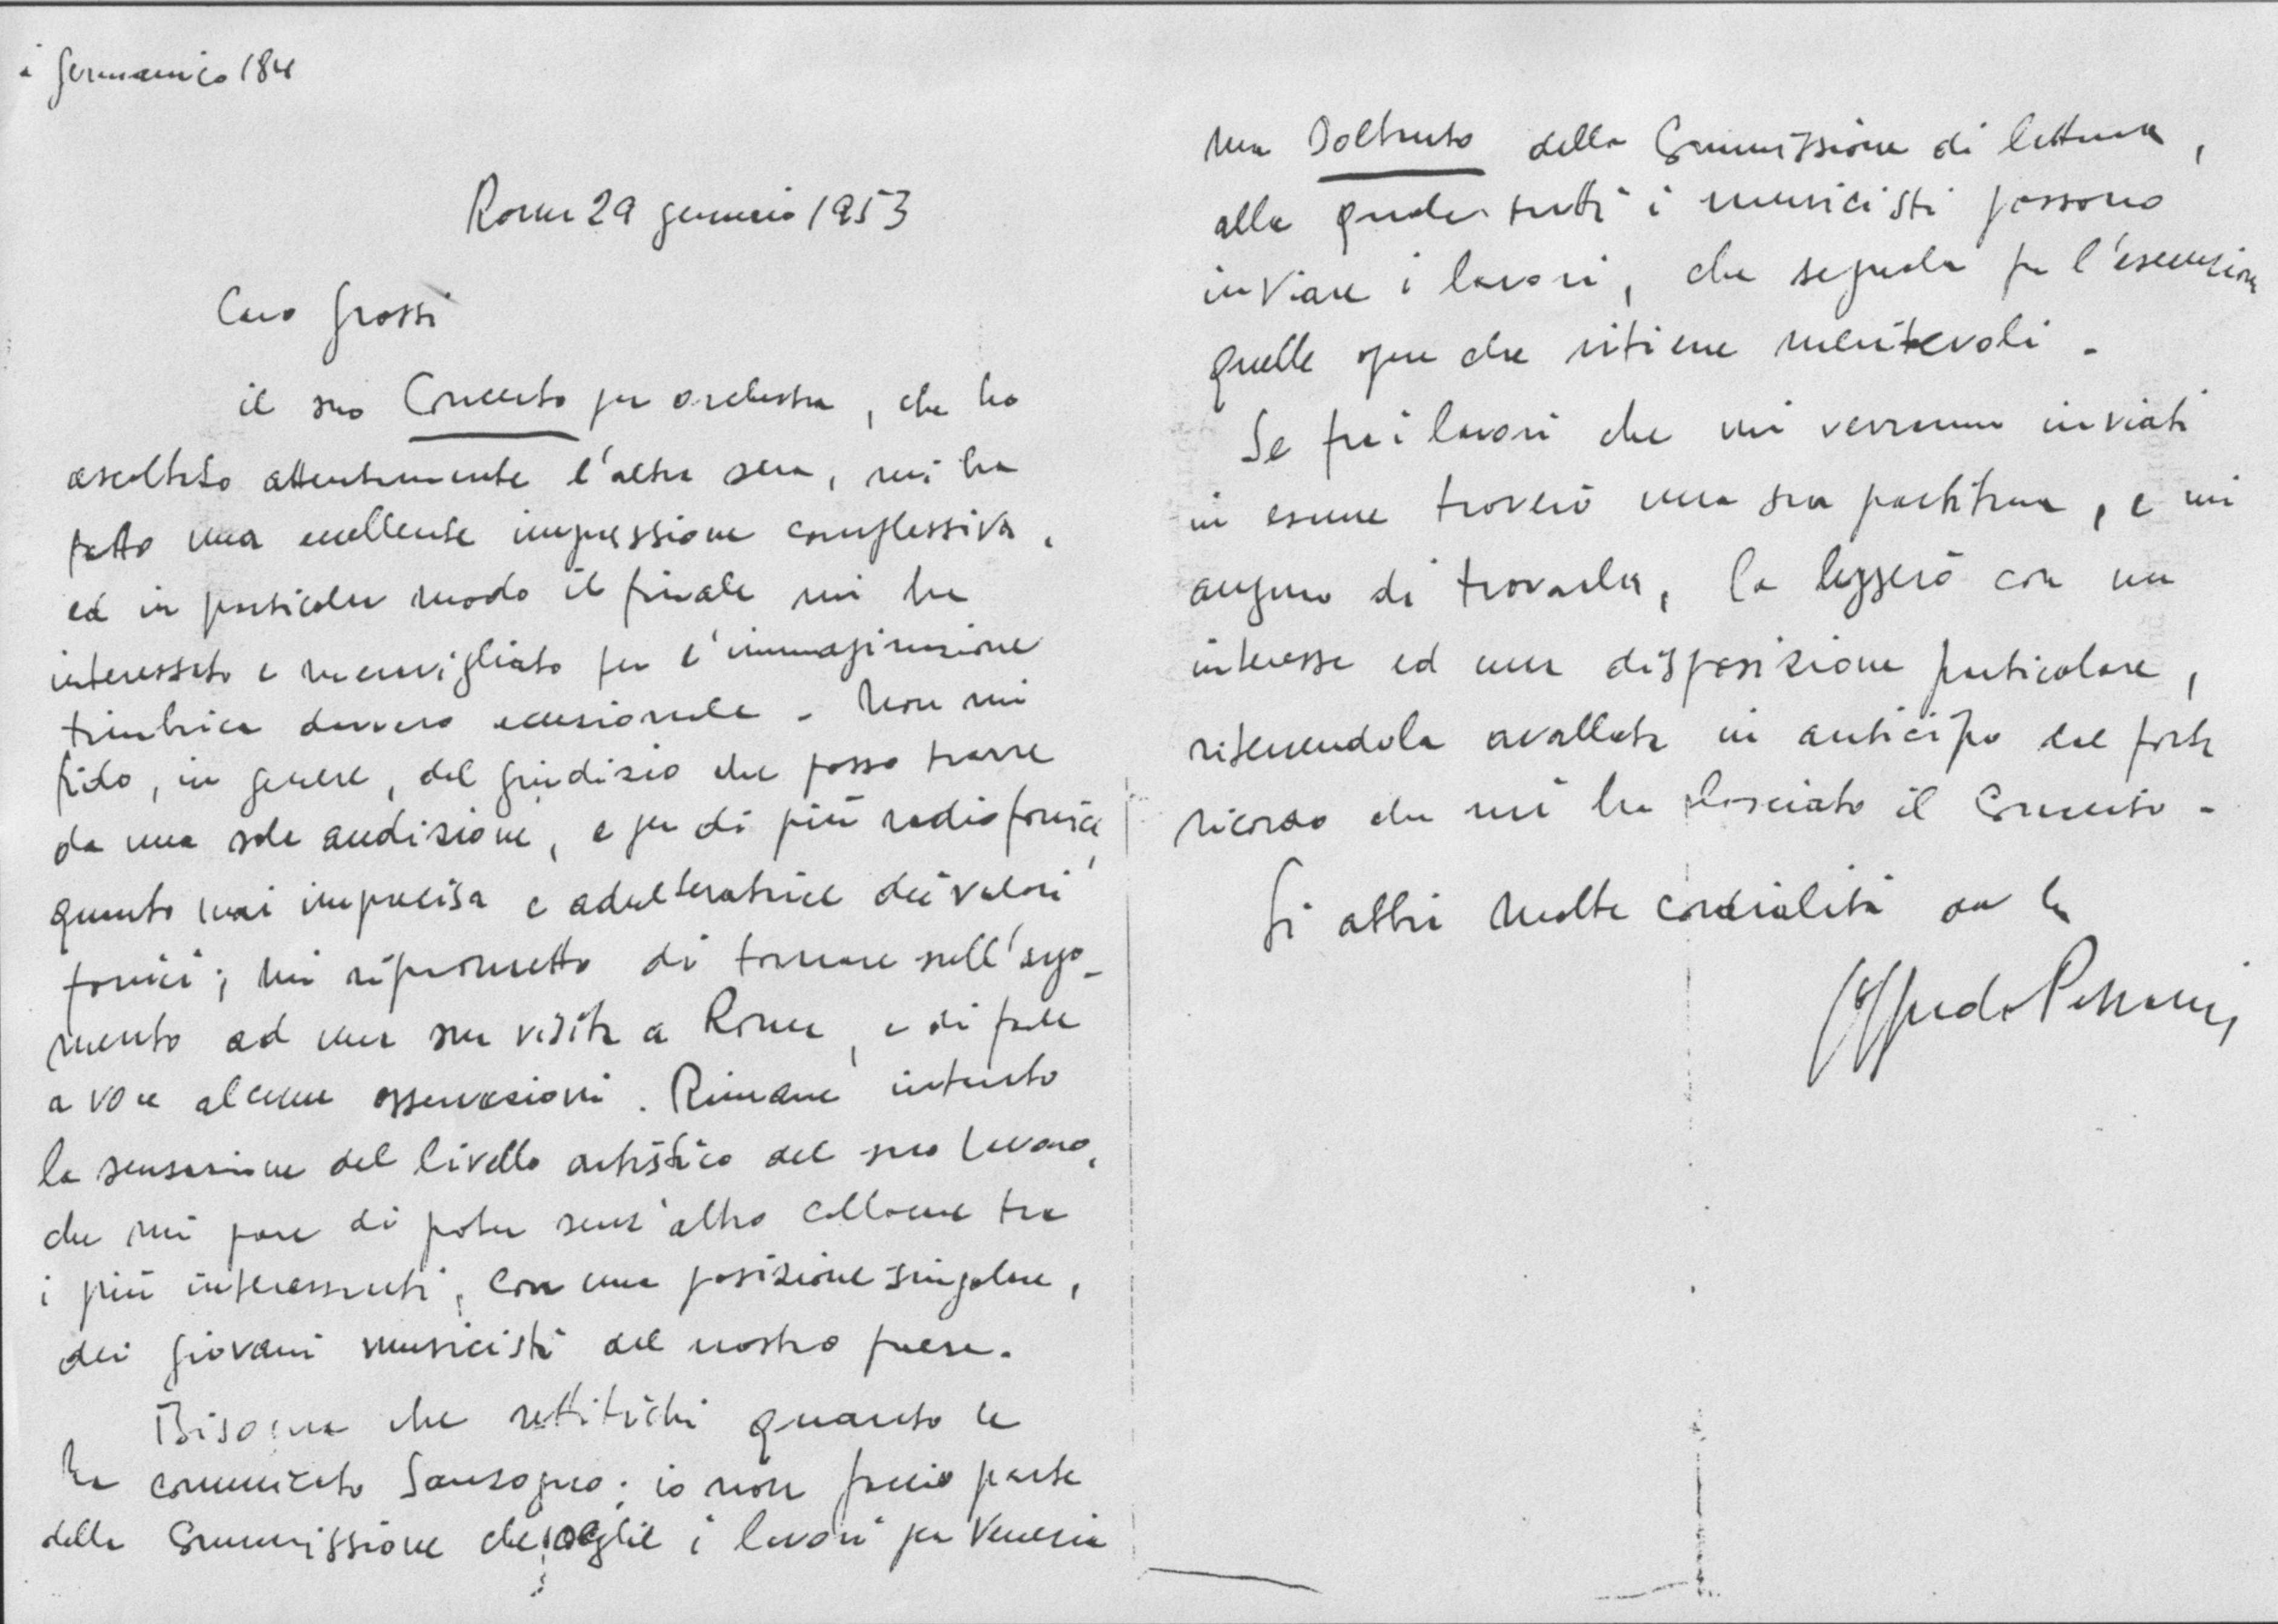 i Germanico 184
Roma 29 gennaio 1953
Caro Grossi
il suo Concerto per orchestra, che ho
ascoltato attentamente l'altra sera, mi ha
fatto una eccellente impressione complessiva,
ed in particolar modo il finale mi ha
interessato e meravigliato per l'immaginazione
timbrica davvero eccezionale. Non mi
fido, in genere, del giudizio che posso trarre
da una sola audizione, e per di più radiofonica,
quanto mai imprecisa e adulteratrice dei valori
fonici; mi riprometto di tornare sull'argo-
mento ad una sua visita a Roma, e di farle
a voce alcune osservazioni. Rimane intanto
la sensazione del livello artistico del suo lavoro,
che mi pare di poter senz'altro collocare tra
i più interessanti, con una posizione singolare,
dei giovani musicisti del nostro paese.
Bisogna che rettifichi quanto le
ha comunicato Sonzogno: io non faccio parte
della Commissione che sceglie i lavori per Venezia
ma soltanto della Commissione di lettura,
alla quale tutti i musicisti possono
inviare i lavori, che segnala per l'esecuzione
quelle opere che ritiene meritevoli.
Se fra i lavori che mi verranno inviati
in esame troverò una sua partitura, e mi
auguro di trovarla, la leggerò con un
interesse ed una disposizione particolare,
ritenendola avallata in anticipo dal forte
ricordo che mi ha lasciato il Concerto.
Si abbia molte cordialità dal
Goffredo Petrassi